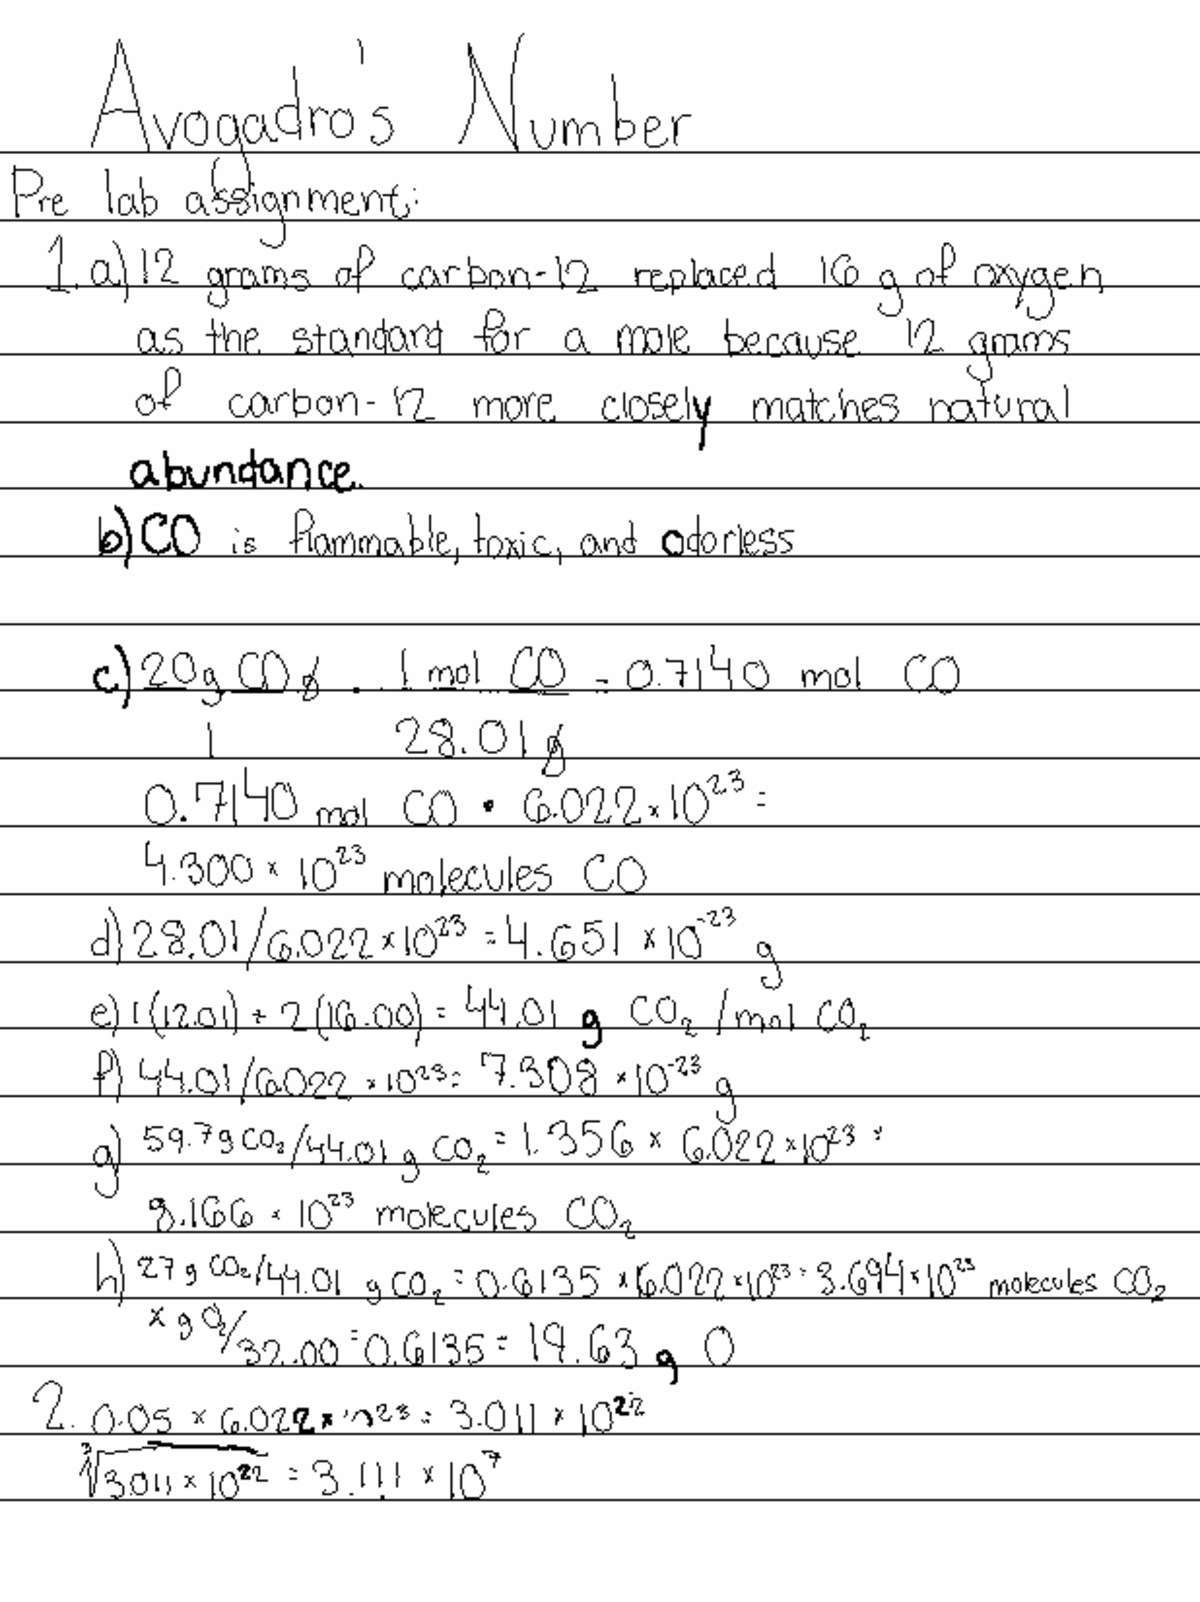 Avogadro's Number
Pre lab assignment:
1. a) 12 grams of carbon-12 replaced 16 g of oxygen
as the standard for a mole because 12 grams
of carbon-12 more closely matches natural
abundance.
b) CO is flammable, toxic, and odorless
c) 20g CO g . 1 mol CO = 0.7140 mol CO
1 28.01 g
0.7140 mol CO • 6.022 × 10²³ =
4.300 × 10²³ molecules CO
d) 28.01/6.022 × 10²³ = 4.651 × 10⁻²³ g
e) 1(12.01) + 2(16.00) = 44.01 g CO₂ /mol CO₂
f) 44.01/6.022 × 10²³ = 7.308 × 10⁻²³ g
g) 59.7g CO₂/44.01 g CO₂ = 1.356 × 6.022 × 10²³ =
8.166 × 10²³ molecules CO₂
h) 27 g CO₂/44.01 g CO₂ = 0.6135 × 6.022 × 10²³ = 3.694 × 10²³ molecules CO₂
x g O₂/32.00 = 0.6135 = 19.63 g O
2. 0.05 × 6.022 × 10²³ = 3.011 × 10²²
∛3.011 × 10²² = 3.111 × 10⁷